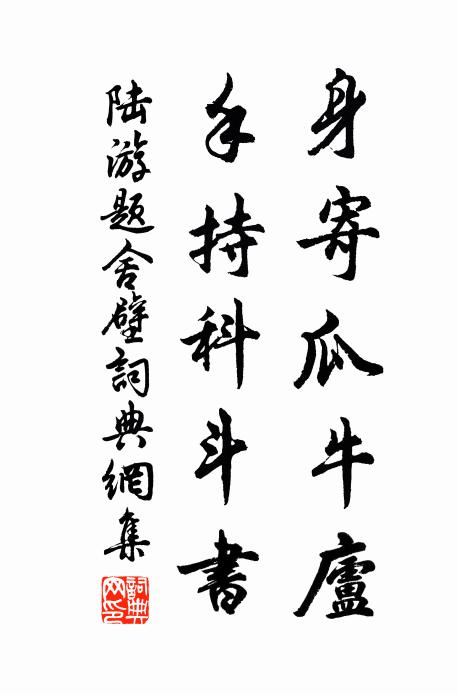 身寄瓜牛廬
手持科斗書
陆游题舍壁詞典網集
詞典网印